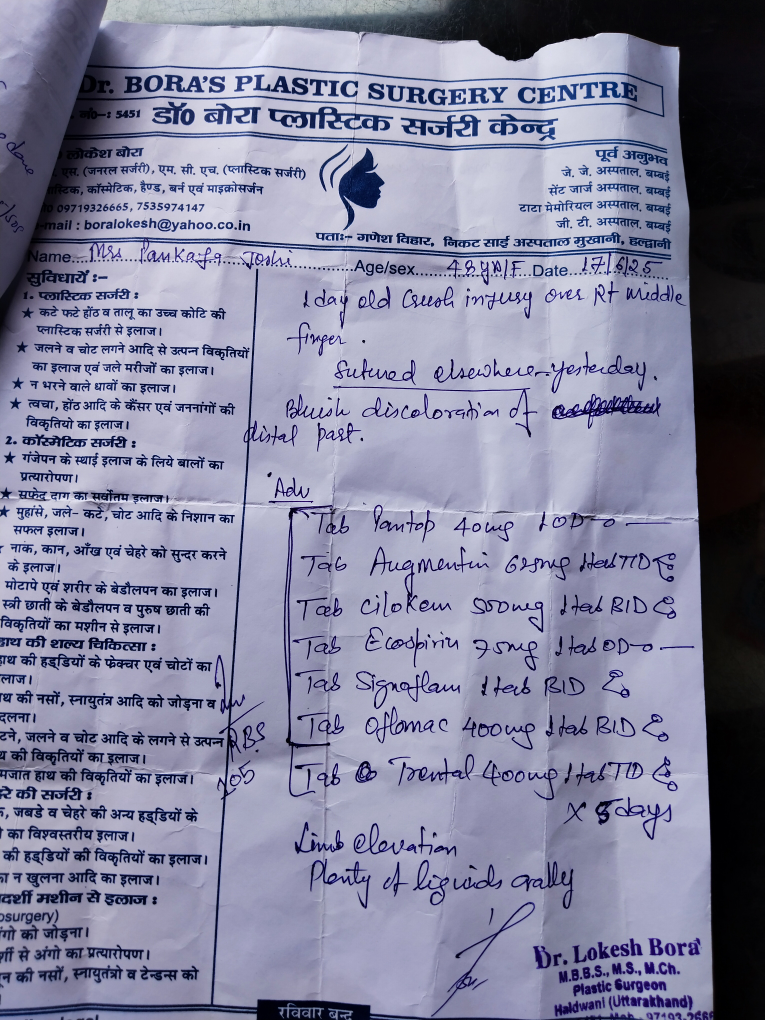 Dr. BORA'S PLASTIC SURGERY CENTRE
नं०-: 5451 डॉ0 बोरा प्लास्टिक सर्जरी केन्द्र
लोकेश बोरा
एस. (जनरल सर्जरी), एम. सी. एच. (प्लास्टिक सर्जरी)
कॉस्मेटिक, हैण्ड, बर्न एवं माइक्रोसर्जन
09719326665, 7535974147
-mail : boralokesh@yahoo.co.in
पूर्व अनुभव
जे. जे. अस्पताल, बम्बई
सेंट जार्ज अस्पताल, बम्बई
टाटा मेमोरियल अस्पताल, बम्बई
जी. टी. अस्पताल, बम्बई
पता:- गणेश विहार, निकट साई अस्पताल मुखानी, हल्द्वानी
Name Mrs Pankaja Joshi Age/sex 48 yr/F Date 17/6/25
सुविधायें :-
1. प्लास्टिक सर्जरी :
★ कटे फटे होंठ व तालू का उच्च कोटि की
प्लास्टिक सर्जरी से इलाज।
★ जलने व चोट लगने आदि से उत्पन्न विकृतियों
का इलाज एवं जले मरीजों का इलाज।
★ न भरने वाले घावों का इलाज।
★ त्वचा, होंठ आदि के कैंसर एवं जननांगों की
विकृतियो का इलाज।
2. कॉस्मेटिक सर्जरी :
★ गंजेपन के स्थाई इलाज के लिये बालों का
प्रत्यारोपण।
★ सफेद दाग का सर्वोतम इलाज।
★ मुहांसे, जले- कटे, चोट आदि के निशान का
सफल इलाज।
नाक, कान, आँख एवं चेहरे को सुन्दर करने
के इलाज।
मोटापे एवं शरीर के बेडौलपन का इलाज।
स्त्री छाती के बेडौलपन व पुरुष छाती की
विकृतियों का मशीन से इलाज।
हाथ की शल्य चिकित्सा :
हाथ की हड्डियों के फेक्चर एवं चोटों का
लाज।
थ की नसों, स्नायुतंत्र आदि को जोड़ना व
दलना।
टने, जलने व चोट आदि के लगने से उत्पन्न
थ की विकृतियों का इलाज।
मजात हाथ की विकृतियों का इलाज।
रे की सर्जरी :
जबडे व चेहरे की अन्य हड्डियों के
का विश्वस्तरीय इलाज।
की हड्डियों की विकृतियों का इलाज।
न खुलना आदि का इलाज।
दर्शी मशीन से इलाज :
osurgery)
अंगो को जोड़ना।
र्शी से अंगो का प्रत्यारोपण।
न की नसों, स्नायुतंत्रो व टेन्डन्स को
RBS
205
1 day old Crush injury over Rt middle
finger.
Sutured elsewhere yesterday.
Bluish discoloration of
distal part.
Adv
Tab Pantop 40mg 1OD
Tab Augmentin 625mg 1tab TID
Tab Cilokem 500mg 1tab BID
Tab Ecospirin 75mg 1tab OD
Tab Signoflam 1tab BID
Tab Oflomac 400mg 1tab BID
Tab Trental 400mg 1tab TID
X 5 days
Limb elevation
Plenty of liquids orally
Dr. Lokesh Bora
M.B.B.S., M.S., M.Ch.
Plastic Surgeon
Haldwani (Uttarakhand)
रविवार बन्द